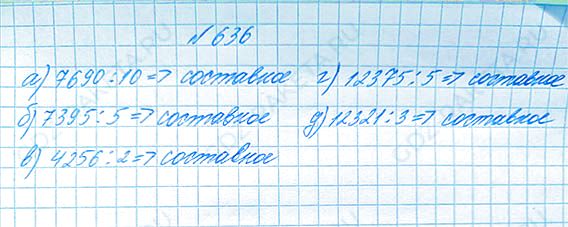 № 636
а) 7690 : 10 => составное
г) 12375 : 5 => составное
б) 7395 : 5 => составное
д) 12321 : 3 => составное
в) 4256 : 2 => составное